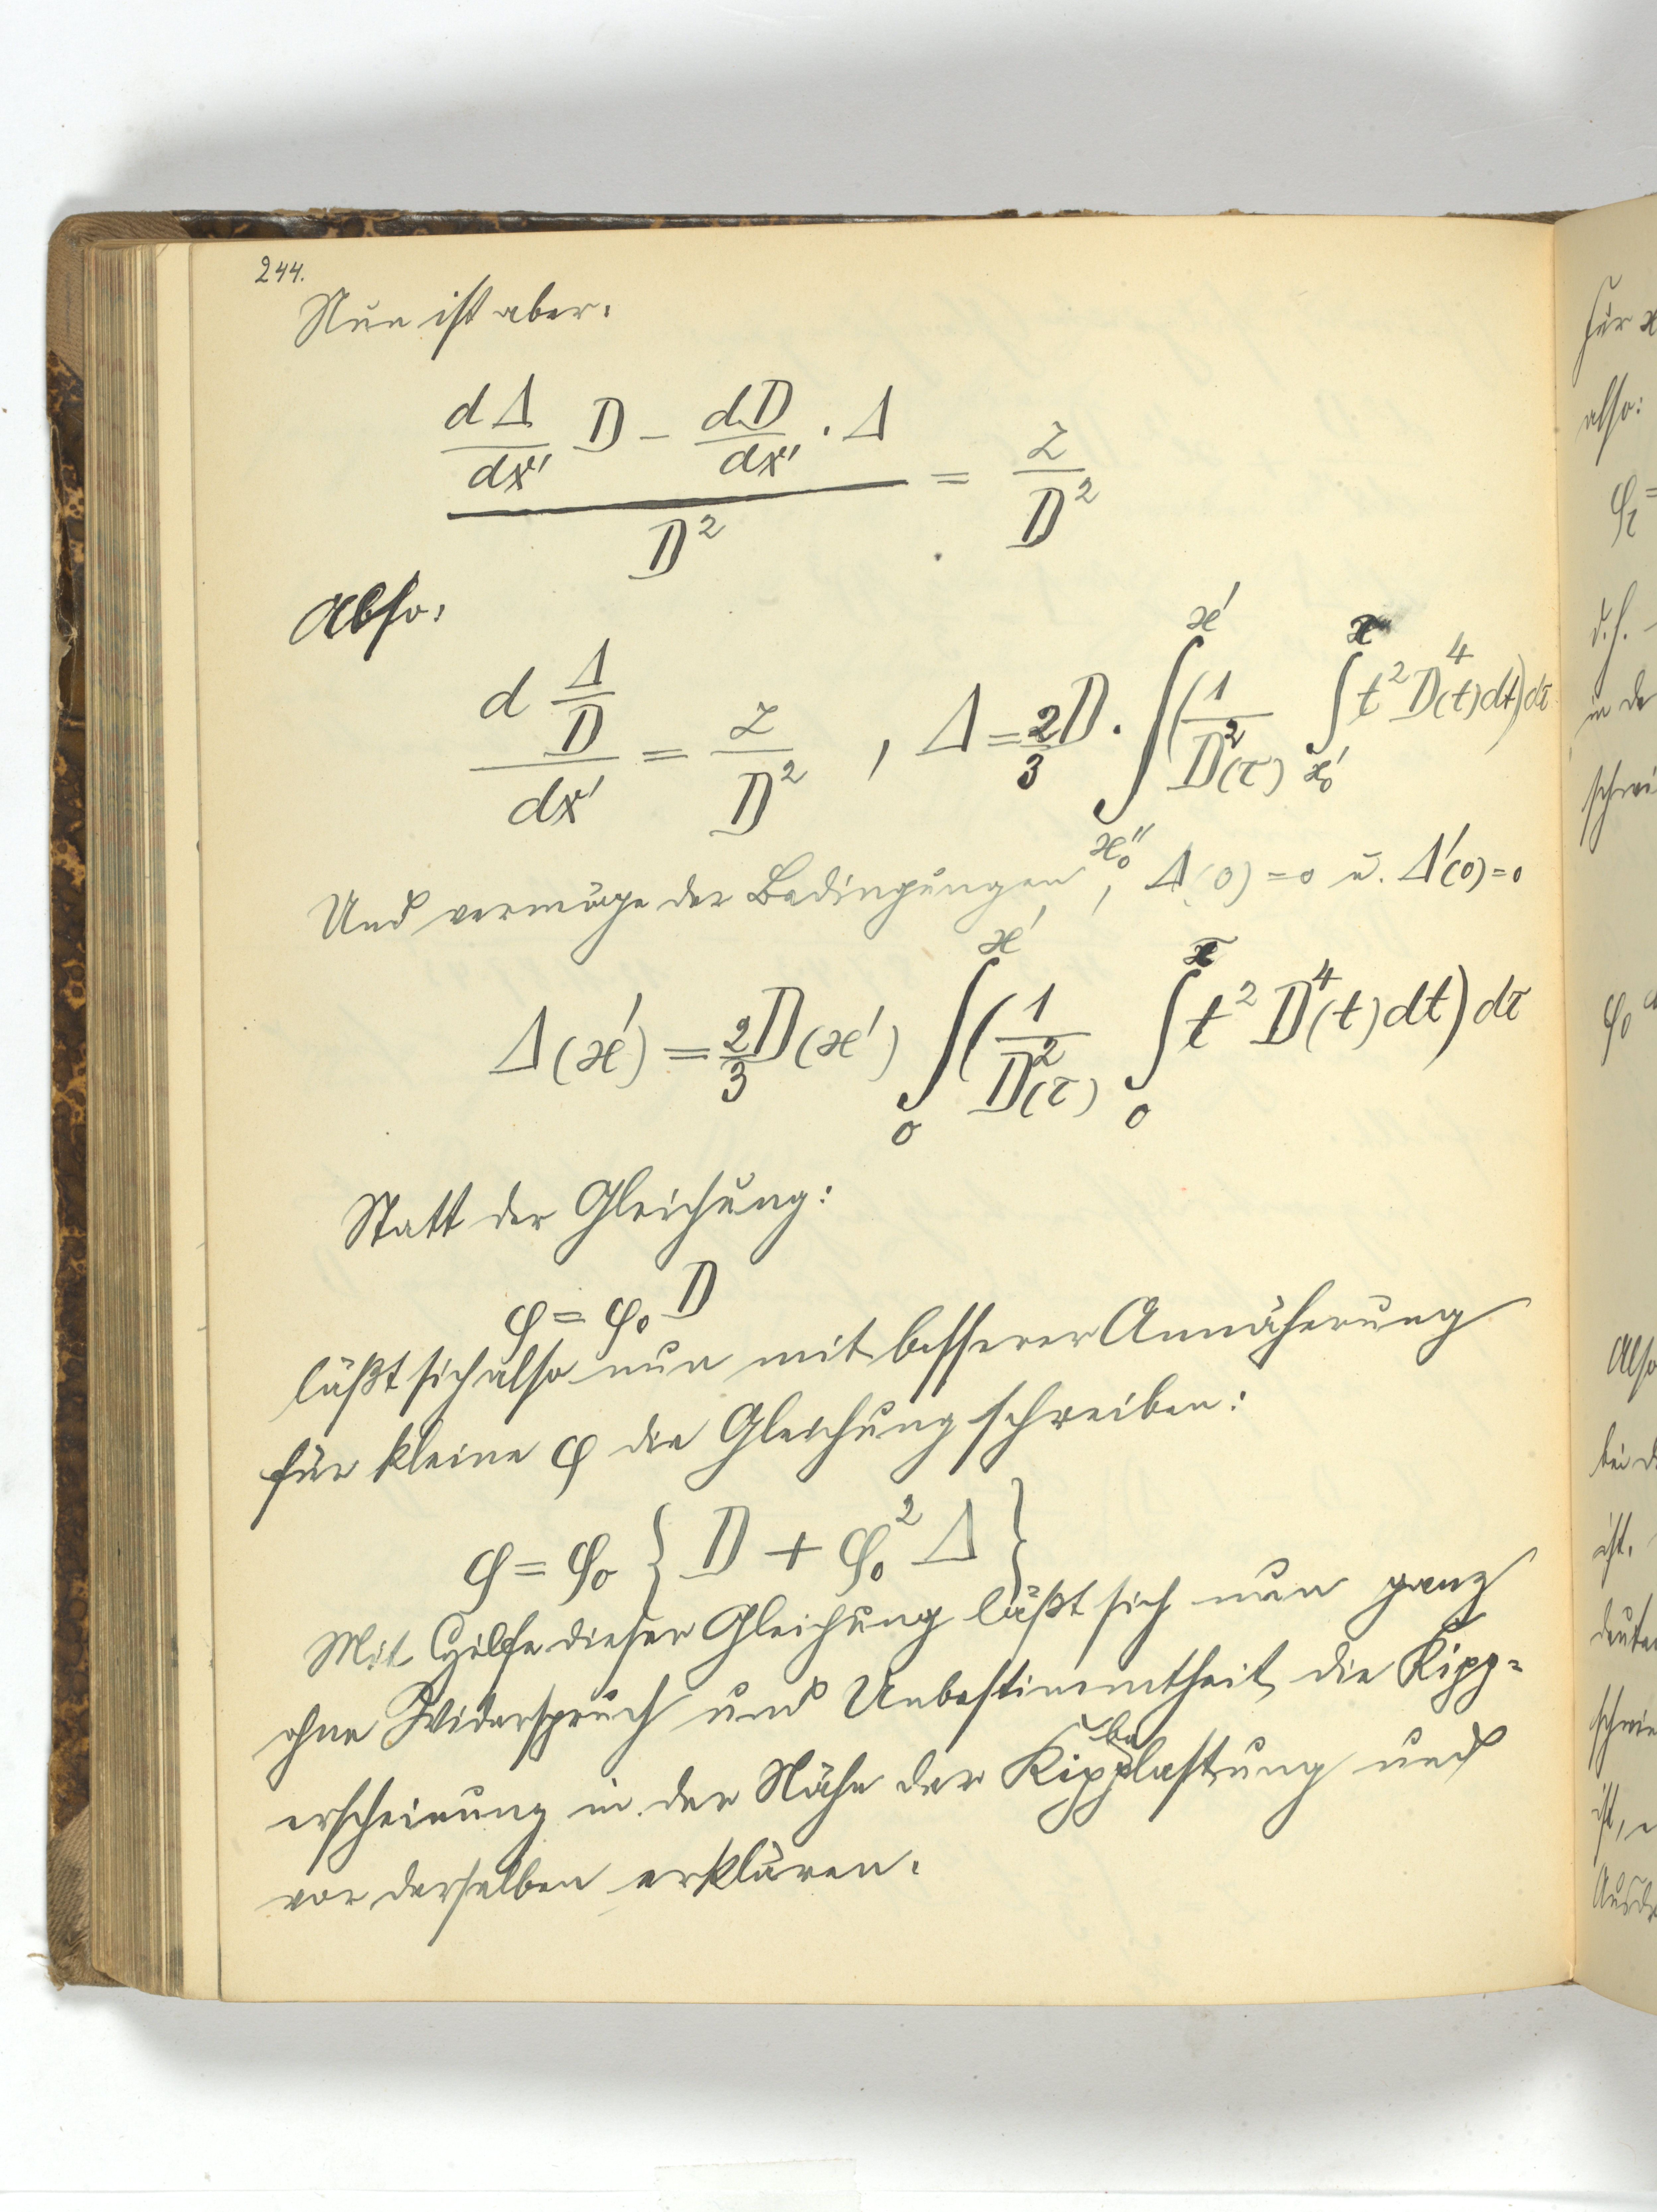 244.
Nun ist aber:
(dΔ/dx' D − dD/dx' · Δ) / D² = Z/D²
Also:
d(Δ/D)/dx' = Z/D² , Δ = 2/3 D · ∫_{x₀''}^{x'} (1/D²(τ) ∫_{x₀'}^{τ} t² D⁴(t) dt) dτ
Und vermöge der Bedingungen, Δ(0) = 0 u. Δ'(0) = 0
Δ(x') = 2/3 D(x') ∫_0^{x'} (1/D²(τ) ∫_0^{τ} t² D⁴(t) dt) dτ
Statt der Gleichung:
φ = φ₀ D
läßt sich also nun mit besserer Annäherung
für kleine φ die Gleichung schreiben:
φ = φ₀ { D + φ₀² Δ }
Mit Hilfe dieser Gleichung läßt sich nun ganz
ohne Widerspruch und Unbestimmtheit die Kipp=
erscheinung in der Nähe der Kippbelastung und
vor derselben erklären.
für x
also:
d.h.
in de
schrei
φ₀
Also
bei d
ist.
ist,